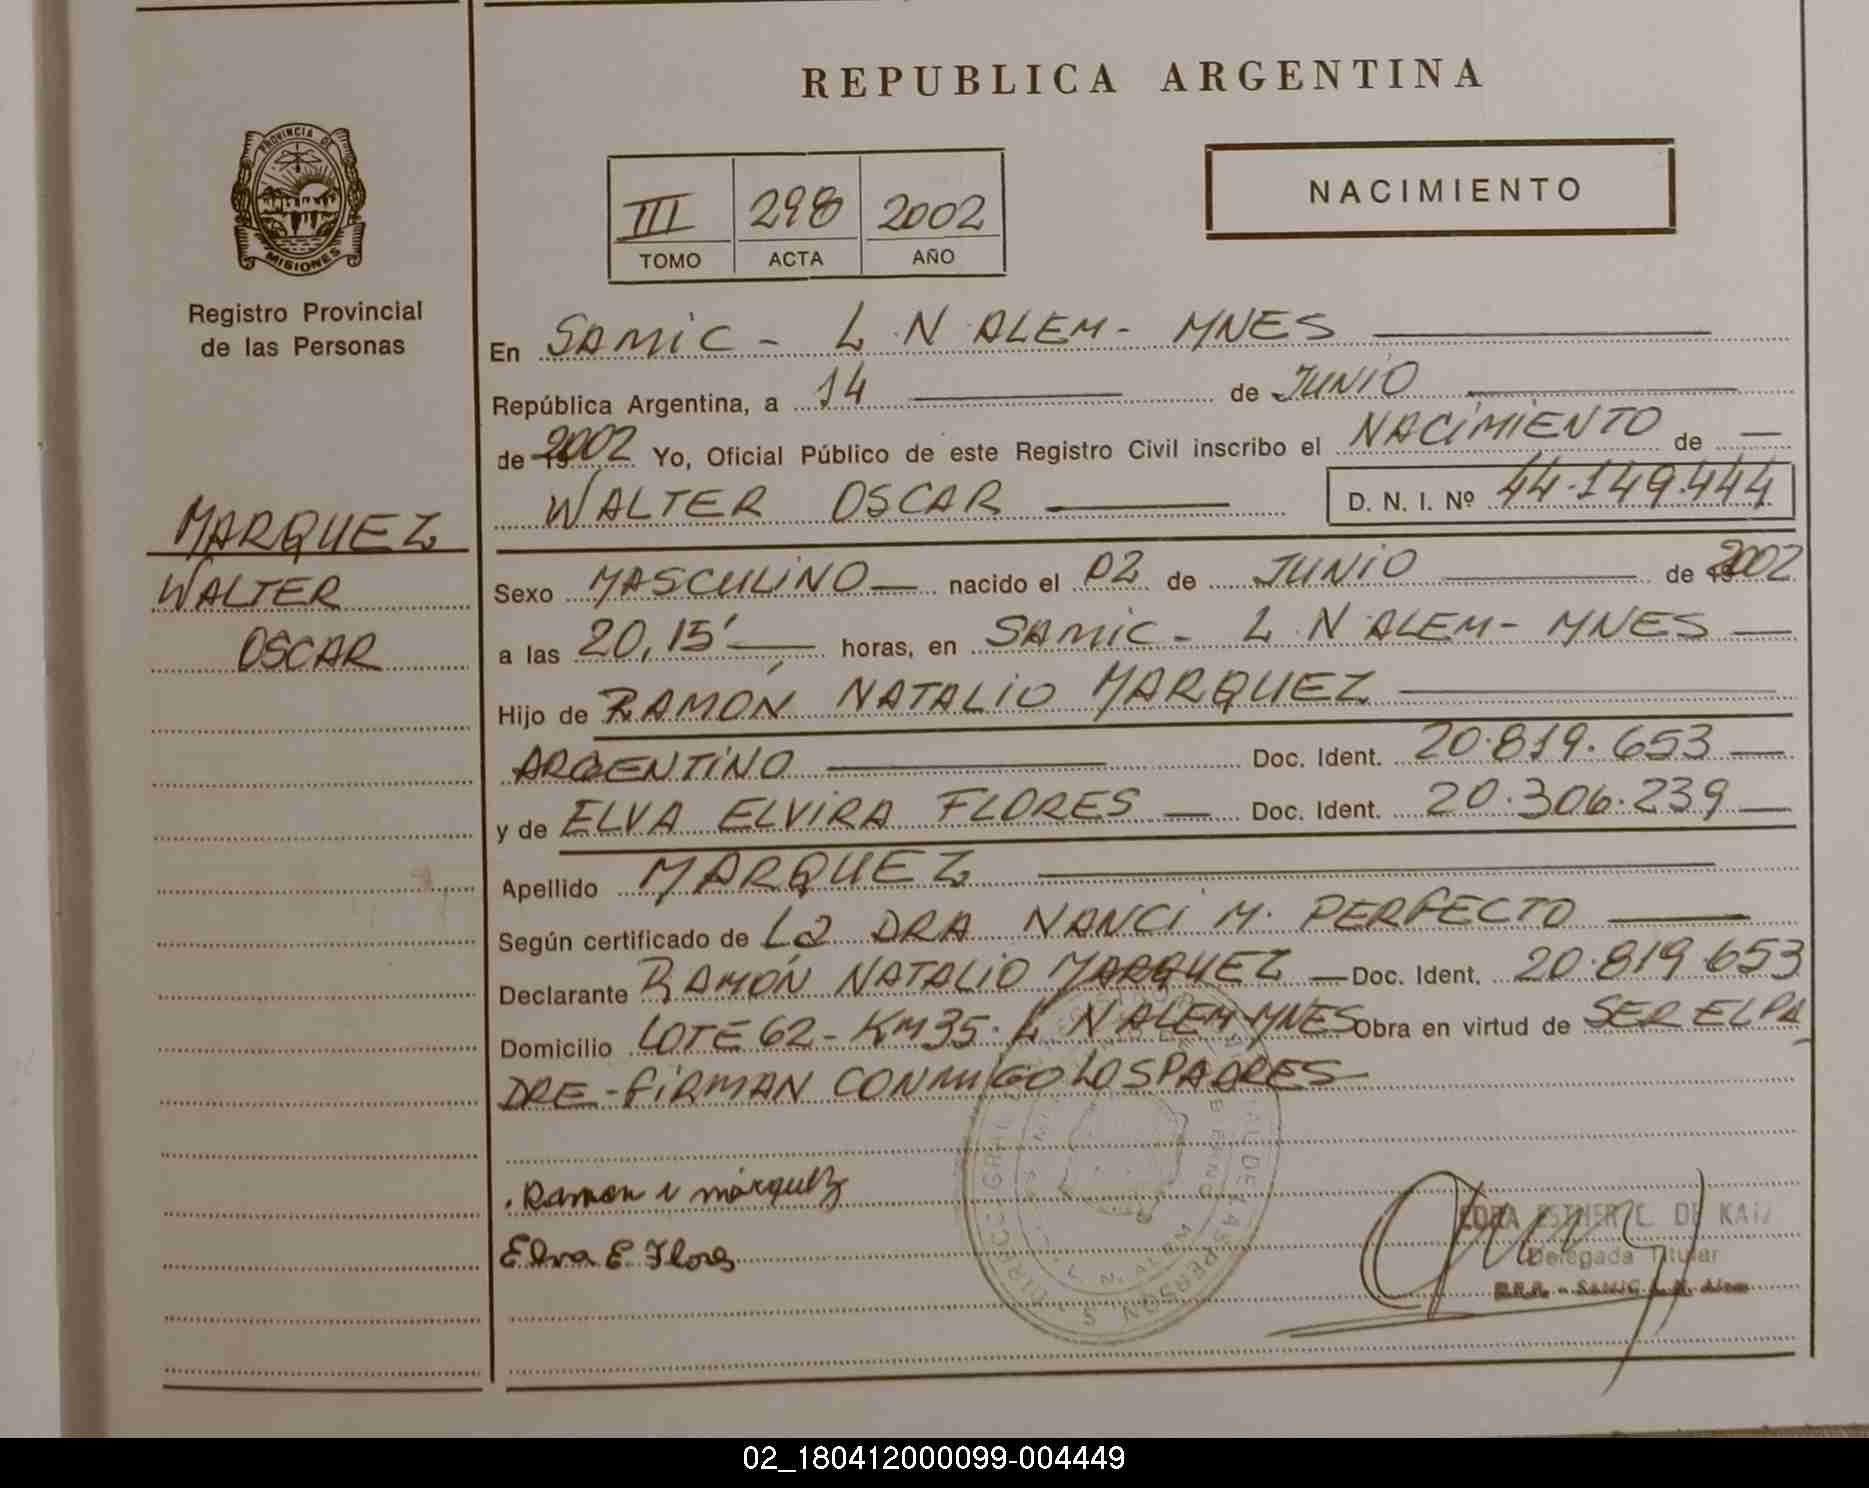 REPUBLICA ARGENTINA
PROVINCIA DE MISIONES
Registro Provincial
de las Personas
III 298 2002
TOMO ACTA AÑO
NACIMIENTO
MARQUEZ
WALTER
OSCAR
En SAMIC - L. N. ALEM - MNES
República Argentina, a 14 de JUNIO
de 2002 Yo, Oficial Público de este Registro Civil inscribo el NACIMIENTO de
WALTER OSCAR D. N. I. Nº 44.149.444
Sexo MASCULINO nacido el 02 de JUNIO de 2002
a las 20,15' horas, en SAMIC - L. N. ALEM - MNES
Hijo de RAMÓN NATALIO MARQUEZ
ARGENTINO Doc. Ident. 20.819.653
y de ELVA ELVIRA FLORES Doc. Ident. 20.306.239
Apellido MARQUEZ
Según certificado de La DRA NANCI M. PERFECTO
Declarante RAMÓN NATALIO MARQUEZ Doc. Ident. 20.819.653
Domicilio LOTE 62 - KM 35. L N ALEM - MNES Obra en virtud de SER EL PA
DRE - FIRMAN CONMIGO LOS PADRES
Ramon N marquez
Elva E. Flores
ESTHER C. DE
Delegada Titular
02_180412000099-004449